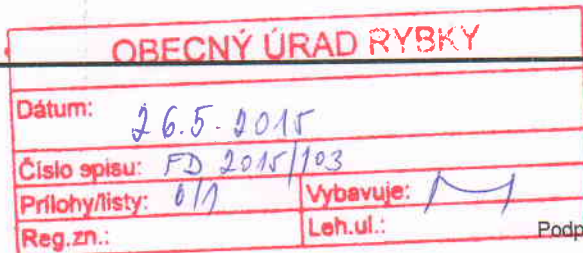 OBECNÝ ÚRAD RYBKY
Dátum: 26.5.2015
Číslo spisu: FD 2015/103
Prílohy/listy: 0/1 Vybavuje:
Reg.zn.: Leh.ul.:
Podp